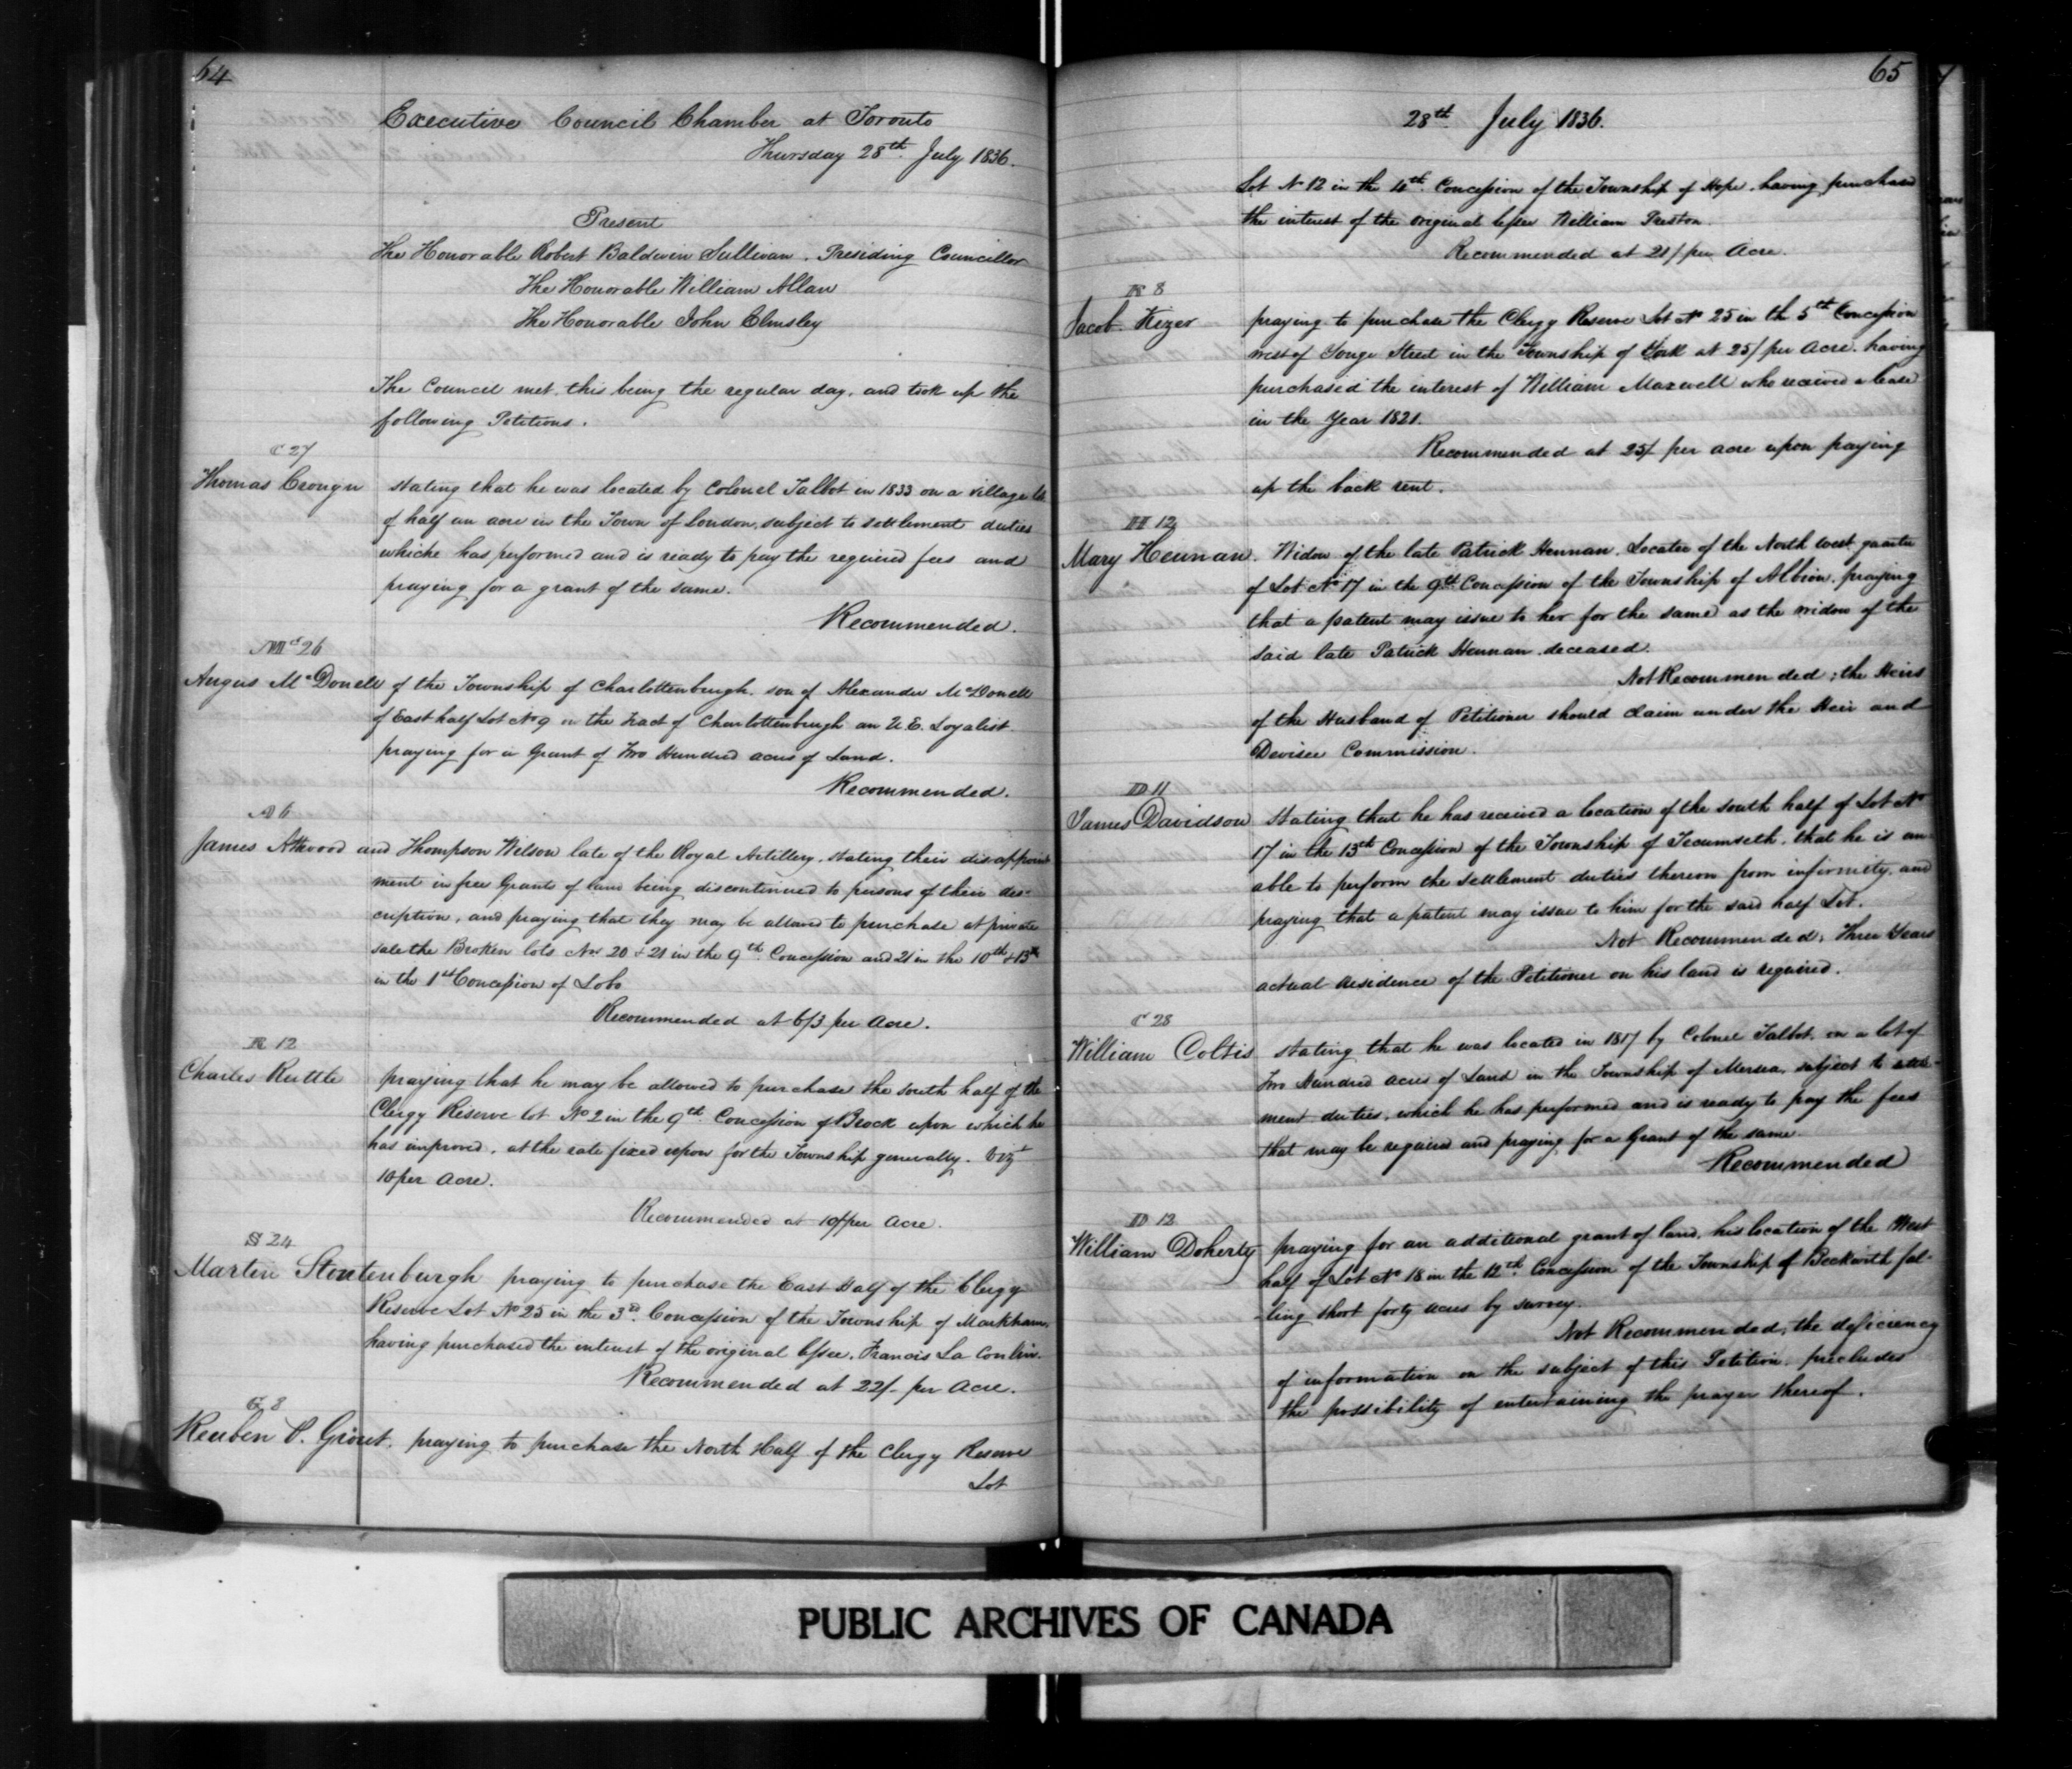 64
Executive Council Chamber at Toronto
Thursday 28th July 1836.
Present
The Honorable Robert Baldwin Sullivan, Presiding Councillor
The Honorable William Allan
The Honorable John Elmsley
The Council met, this being the regular day, and took up the
following Petitions.
C 27
Thomas Cronyn stating that he was located by Colonel Talbot in 1833 on a village lot
of half an acre in the Town of London, subject to settlement duties
whiche has performed and is ready to pay the required fees and
praying for a grant of the same.
Recommended.
Mc 26
Angus McDonell of the Township of Charlottenburgh, son of Alexander McDonell
of East half Lot No 9 in the Tract of Charlottenburgh an U.E. Loyalist
praying for a Grant of Two Hundred acres of Land.
Recommended.
A 6
James Attwood and Thompson Wilson late of the Royal Artillery, stating their disappoint
ment in free Grants of land being discontinued to persons of their des-
cription, and praying that they may be allowed to purchase at private
sale the Broken lots Nos 20 & 21 in the 9th Concession and 21 in the 10th & 13th
in the 1st Concession of Lobo
Recommended at 6/3 per Acre.
R 12
Charles Ruttle praying that he may be allowed to purchase the South half of the
Clergy Reserve lot No 2 in the 9th Concession of Brock upon which he
has improved, at the rate fixed upon for the Township generally. Vizt
10 per Acre.
Recommended at 10/ per Acre.
S 24
Martin Stoutenburgh praying to purchase the East Half of the Clergy
Reserve Lot No 25 in the 3rd Concession of the Township of Markham,
having purchased the interest of the original lessee, Francis La Conlin.
Recommended at 22/- per Acre.
G 8
Reuben P. Grout, praying to purchase the North Half of the Clergy Reserve
Lot
65
28th July 1836.
Lot No 12 in the 4th Concession of the Township of Hope, having purchased
the interest of the original lessee William Preston.
Recommended at 21/ per Acre.
K 8
Jacob Kizer praying to purchase the Clergy Reserve Lot No 25 in the 5th Concession
west of Yonge Street in the Township of York at 25/ per Acre, having
purchased the interest of William Maxwell who received a lease
in the Year 1821.
Recommended at 25/ per acre upon paying
up the back rent.
H 12
Mary Hennan. Widow of the late Patrick Hennan, Locatee of the North west quarter
of Lot No 17 in the 9th Concession of the Township of Albion, praying
that a patent may issue to her for the same as the widow of the
said late Patrick Hennan deceased.
Not Recommended; the Heirs
of the Husband of Petitioner should claim under the Heir and
Devisee Commission.
D 11
James Davidson stating that he has received a location of the South half of Lot No
17 in the 13th Concession of the Township of Tecumseth, that he is un
able to perform the settlement duties thereon from infirmity, and
praying that a patent may issue to him for the said half Lot.
Not Recommended, Three Years
actual residence of the Petitioner on his land is required.
C 28
William Coltis stating that he was located in 1817 by Colonel Talbot, on a lot of
Two Hundred acres of Land in the Township of Mersea, subject to settle-
ment duties, which he has performed and is ready to pay the fees
that may be required and praying for a Grant of the same.
Recommended
D 12
William Doherty praying for an additional grant of land, his location of the West
half of Lot No 18 in the 12th Concession of the Township of Beckwith fal-
-ling short forty acres by survey.
Not Recommended, the deficiency
of information on the subject of this Petition, precludes
the possibility of entertaining the prayer thereof.
PUBLIC ARCHIVES OF CANADA